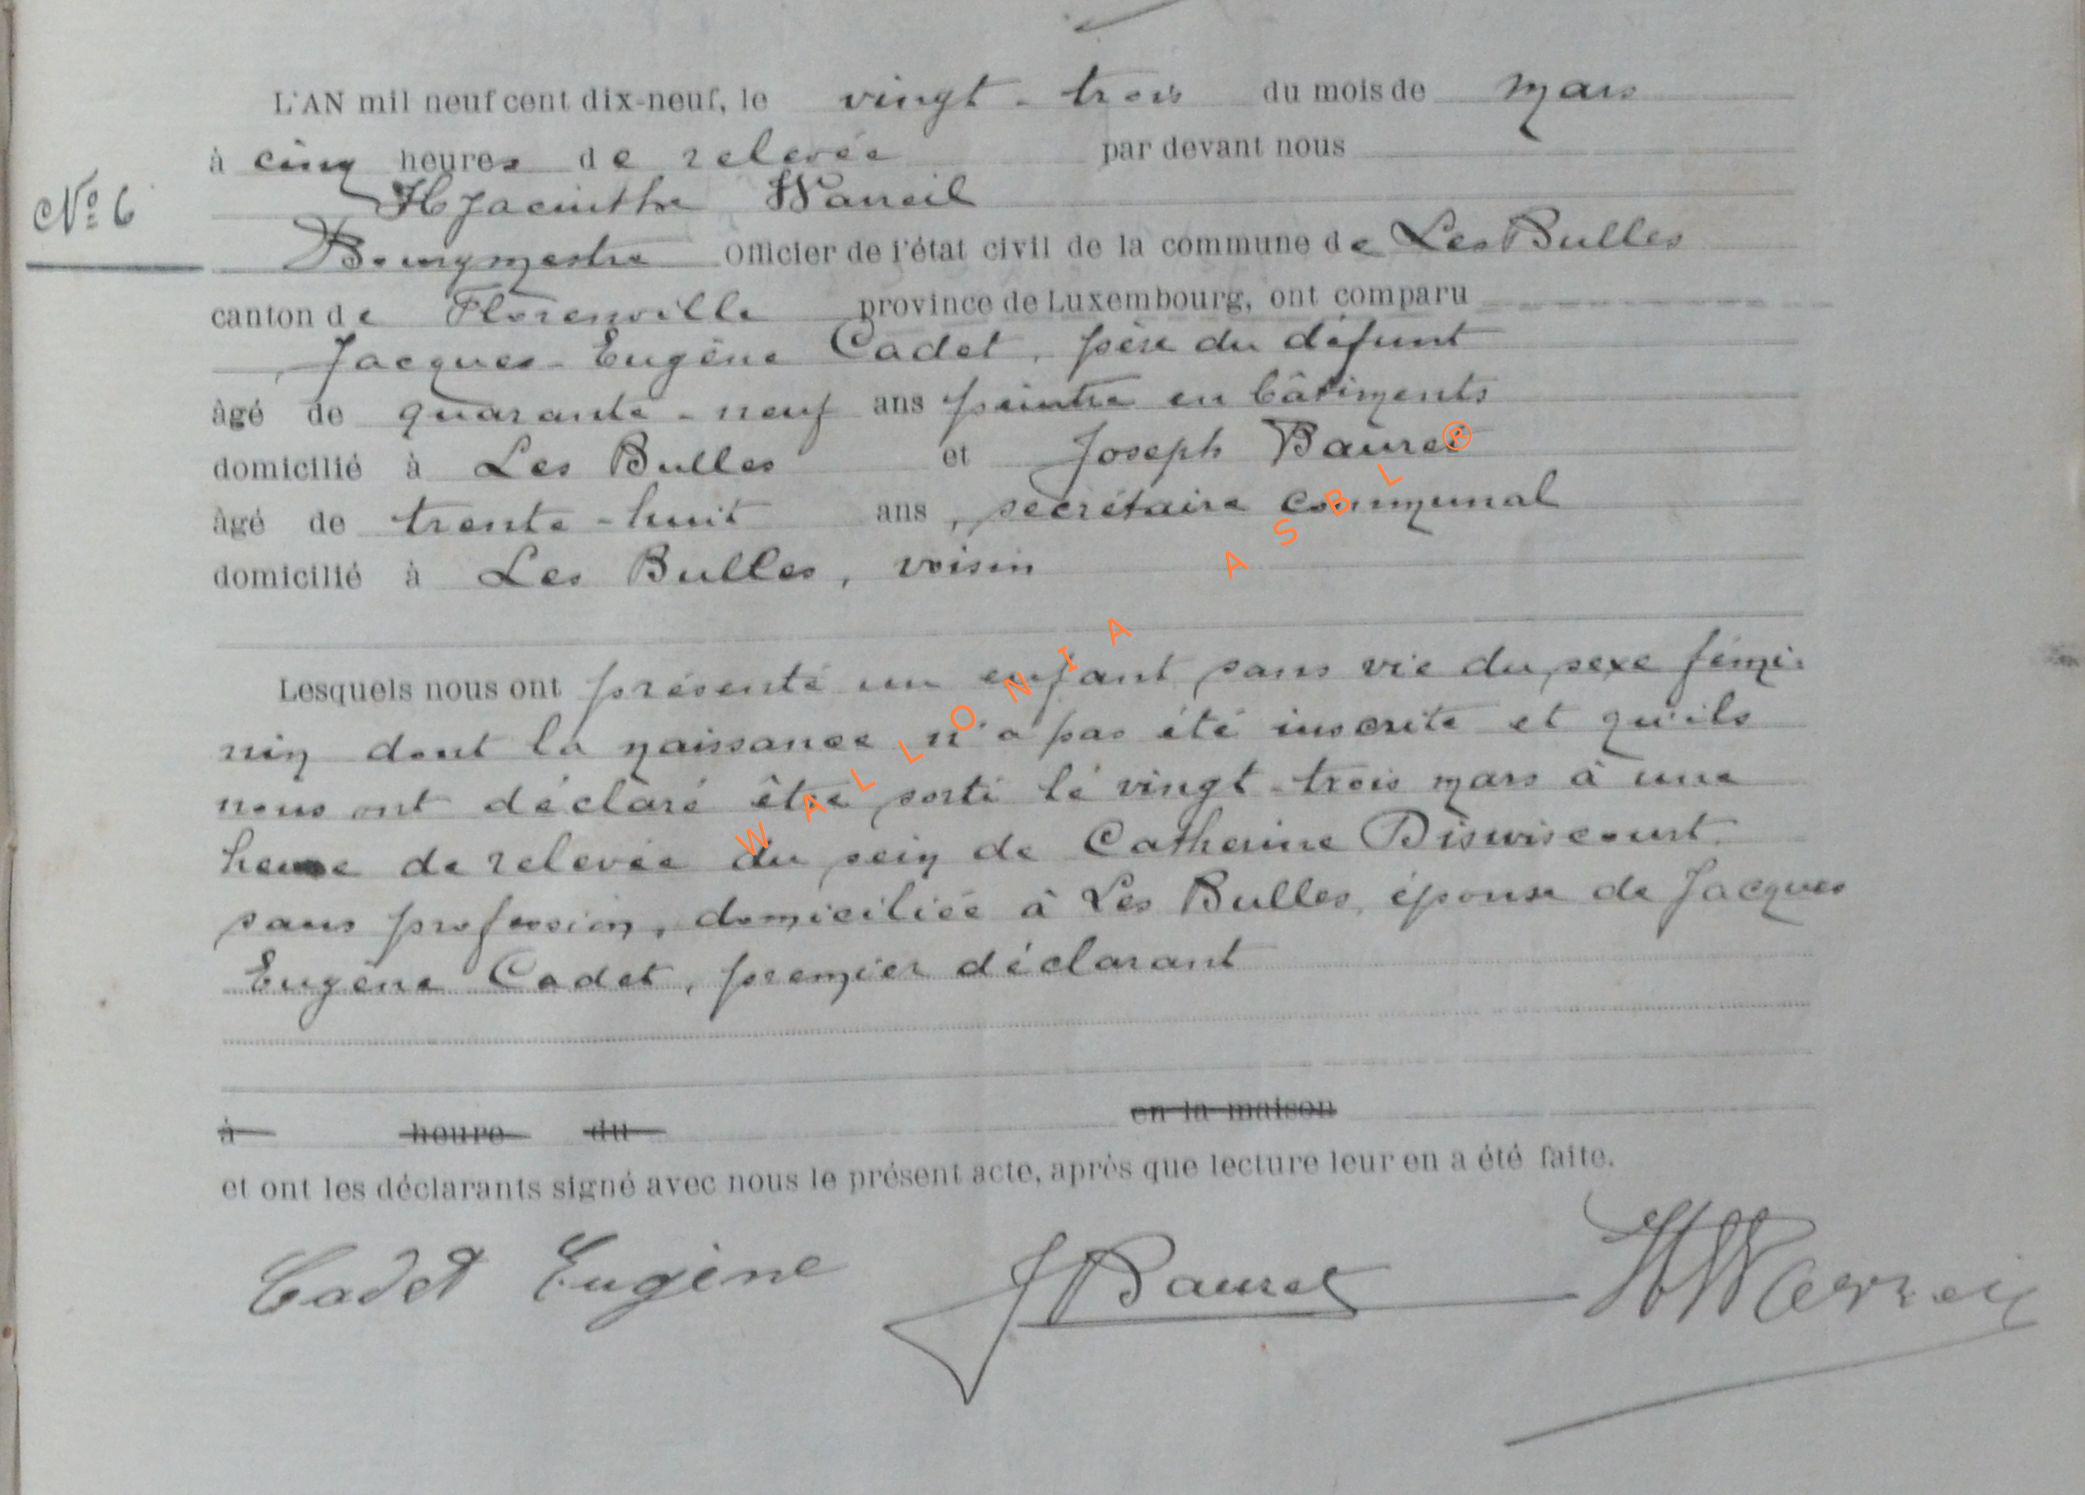 L'AN mil neuf cent dix-neuf, le vingt-trois du mois de mars
à cinq heures de relevée par devant nous
Hyacinthe Warreil
N° 6
Bourgmestre Officier de l'état civil de la commune de Les Bulles
canton de Florenville province de Luxembourg, ont comparu
Jacques-Eugène Cadet, père du défunt
âgé de quarante-neuf ans peintre en bâtiments
domicilié à Les Bulles et Joseph Bauret
âgé de trente-huit ans, secrétaire communal
domicilié à Les Bulles, voisin
Lesquels nous ont présenté un enfant sans vie du sexe fémi-
nin dont la naissance n'a pas été inscrite et qu'ils
nous ont déclaré être sorti le vingt-trois mars à une
heure de relevée du sein de Catherine Diswiscourt
sans profession, domiciliée à Les Bulles, épouse de Jacques
Eugène Cadet, premier déclarant
à heure du en la maison
et ont les déclarants signé avec nous le présent acte, après que lecture leur en a été faite.
Cadet Eugène J Bauret H Warreil
WALLONIA ASBL ®